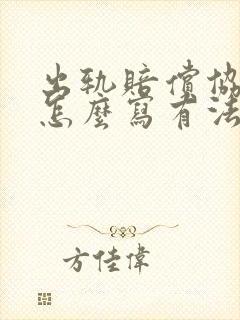 出轨賠償協
怎麼寫有法
方佳偉